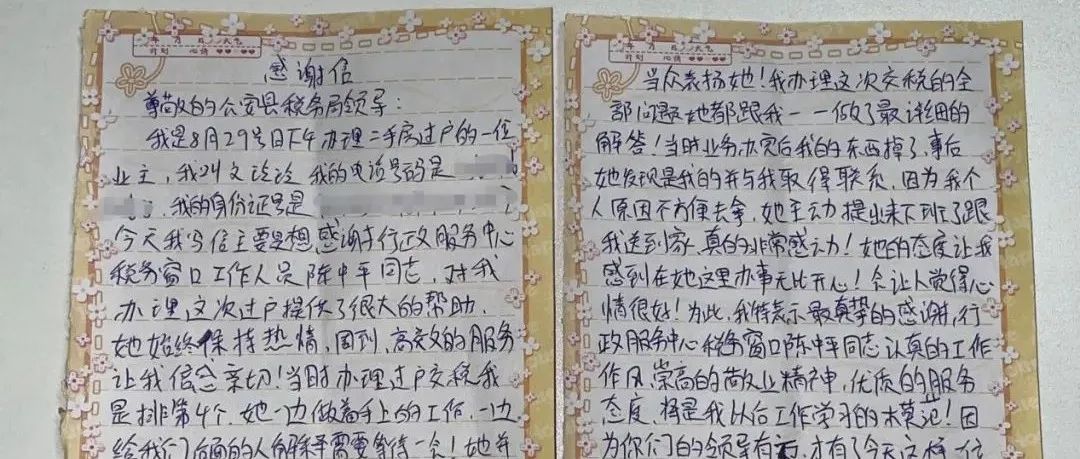 年 月 日 天气
时刻 心情
感谢信
尊敬的公安县税务局领导:
我是8月29号日下午办理二手房过户的一位
业主,我叫文 我的电话号码是
我的身份证号是
今天我写信主要是想感谢行政服务中心
税务窗口工作人员陈中平同志,对我
办理这次过户提供了很大的帮助,
她始终保持热情,周到,高效的服务
让我倍感亲切!当时办理过户交税我
是排第4个,她一边做着手上的工作,一边
给我们后面的人解释需要等待一会!她并
年 月 日 天气
时刻 心情
当众表扬她!我办理这次交税的全
部问题她都跟我一一做了最详细的
解答!当时业务办完后我的东西掉了,事后
她发现是我的并与我取得联系,因为我个
人原因不方便去拿,她主动提出来下班了跟
我送到家,真的非常感动!她的态度让我
感到在她这里办事无比开心!会让人觉得心
情很好!为此,我特表示最真挚的感谢,行
政服务中心税务窗口陈中平同志认真的工作
作风,崇高的敬业精神,优质的服务
态度,将是我以后工作学习的木莫范!因
为你们的领导有方,才有了今天这样一位